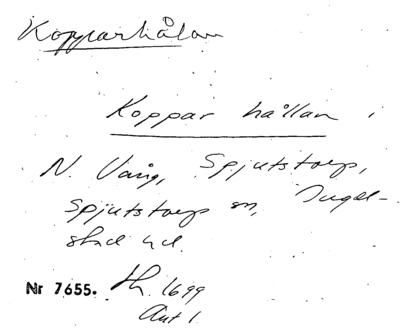 Kopparhålan
Koppar hållan i
N. Vång, Spjutstorp,
Spjutstorp sn, Ingel-
stad hd.
Nr 7655. Th. 1699
Akt 1.